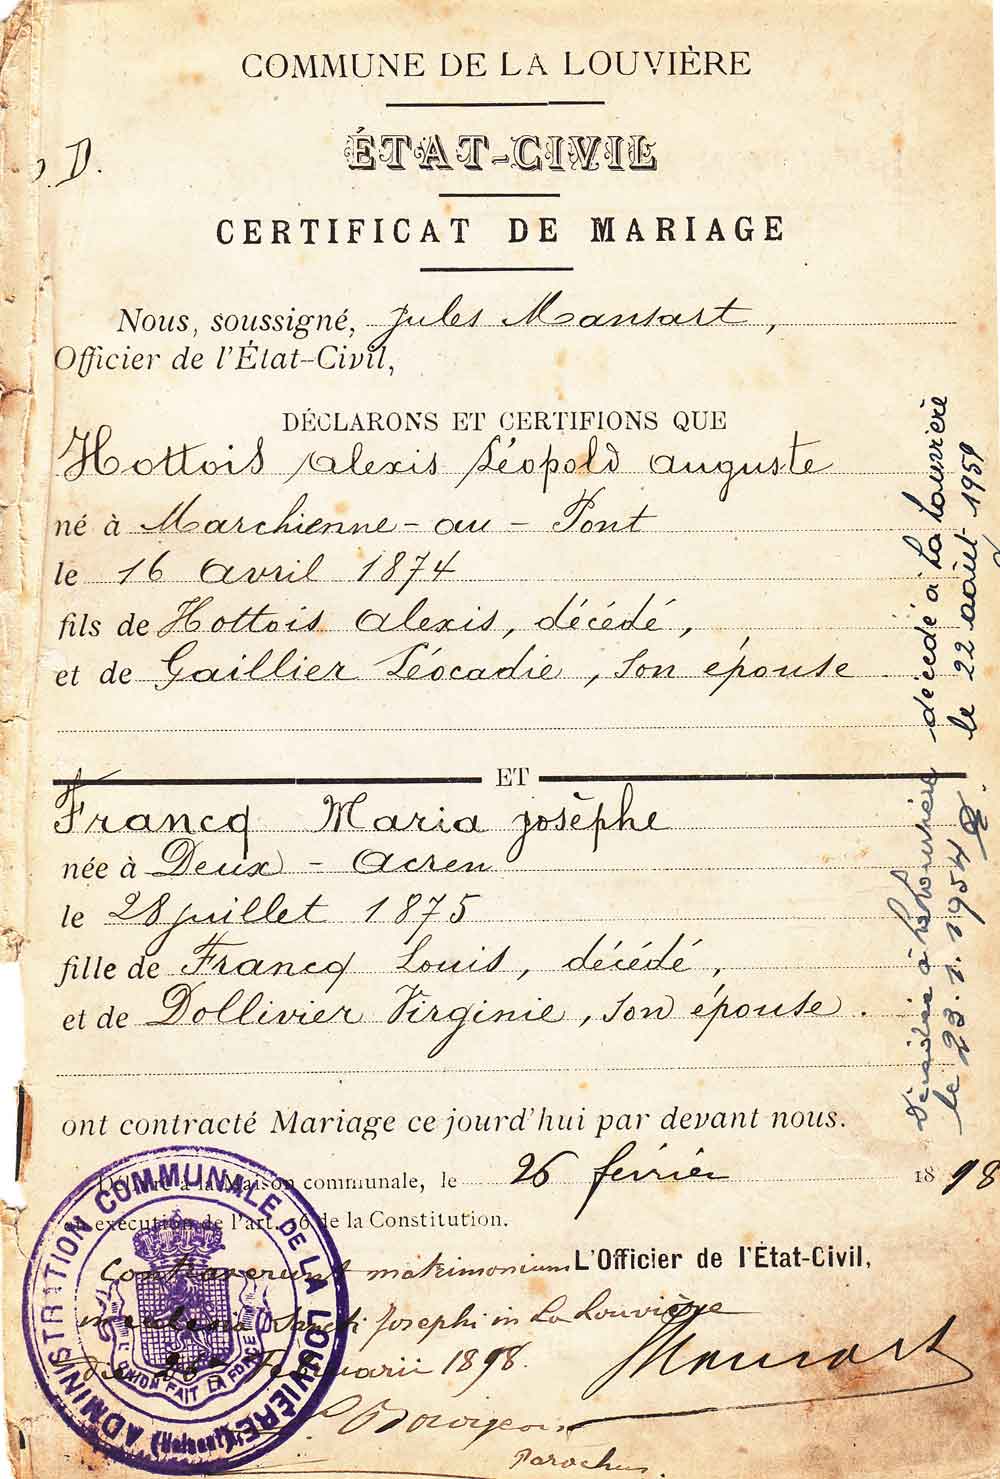 COMMUNE DE LA LOUVIÈRE
ÉTAT-CIVIL
D.
CERTIFICAT DE MARIAGE
Nous, soussigné, Jules Mansart,
Officier de l'État-Civil,
DÉCLARONS ET CERTIFIONS QUE
Hottois Alexis Léopold Auguste
né à Marchienne-au-Pont
le 16 avril 1874
fils de Hottois Alexis, décédé,
et de Gaillier Léocadie, son épouse
décédé à La Louvière
le 22 août 1951
ET
Francq Maria josèphe
née à Deux-Acren
le 28 juillet 1875
fille de Francq Louis, décédé,
et de Dollivier Virginie, son épouse.
Décédée à La Louvière
le 23.1.1954
ont contracté Mariage ce jourd'hui par devant nous.
Délivré à la Maison communale, le 26 février 1898
en exécution de l'art. 16 de la Constitution.
L'Officier de l'État-Civil,
Contraxerunt matrimonium
in ecclesia Sancti Josephi in La Louvière
die 26 Februarii 1898.
Mansart
Bourgeois
Parochus
ADMINISTRATION COMMUNALE DE LA LOUVIÈRE
(Hainaut)
L'UNION FAIT LA FORCE